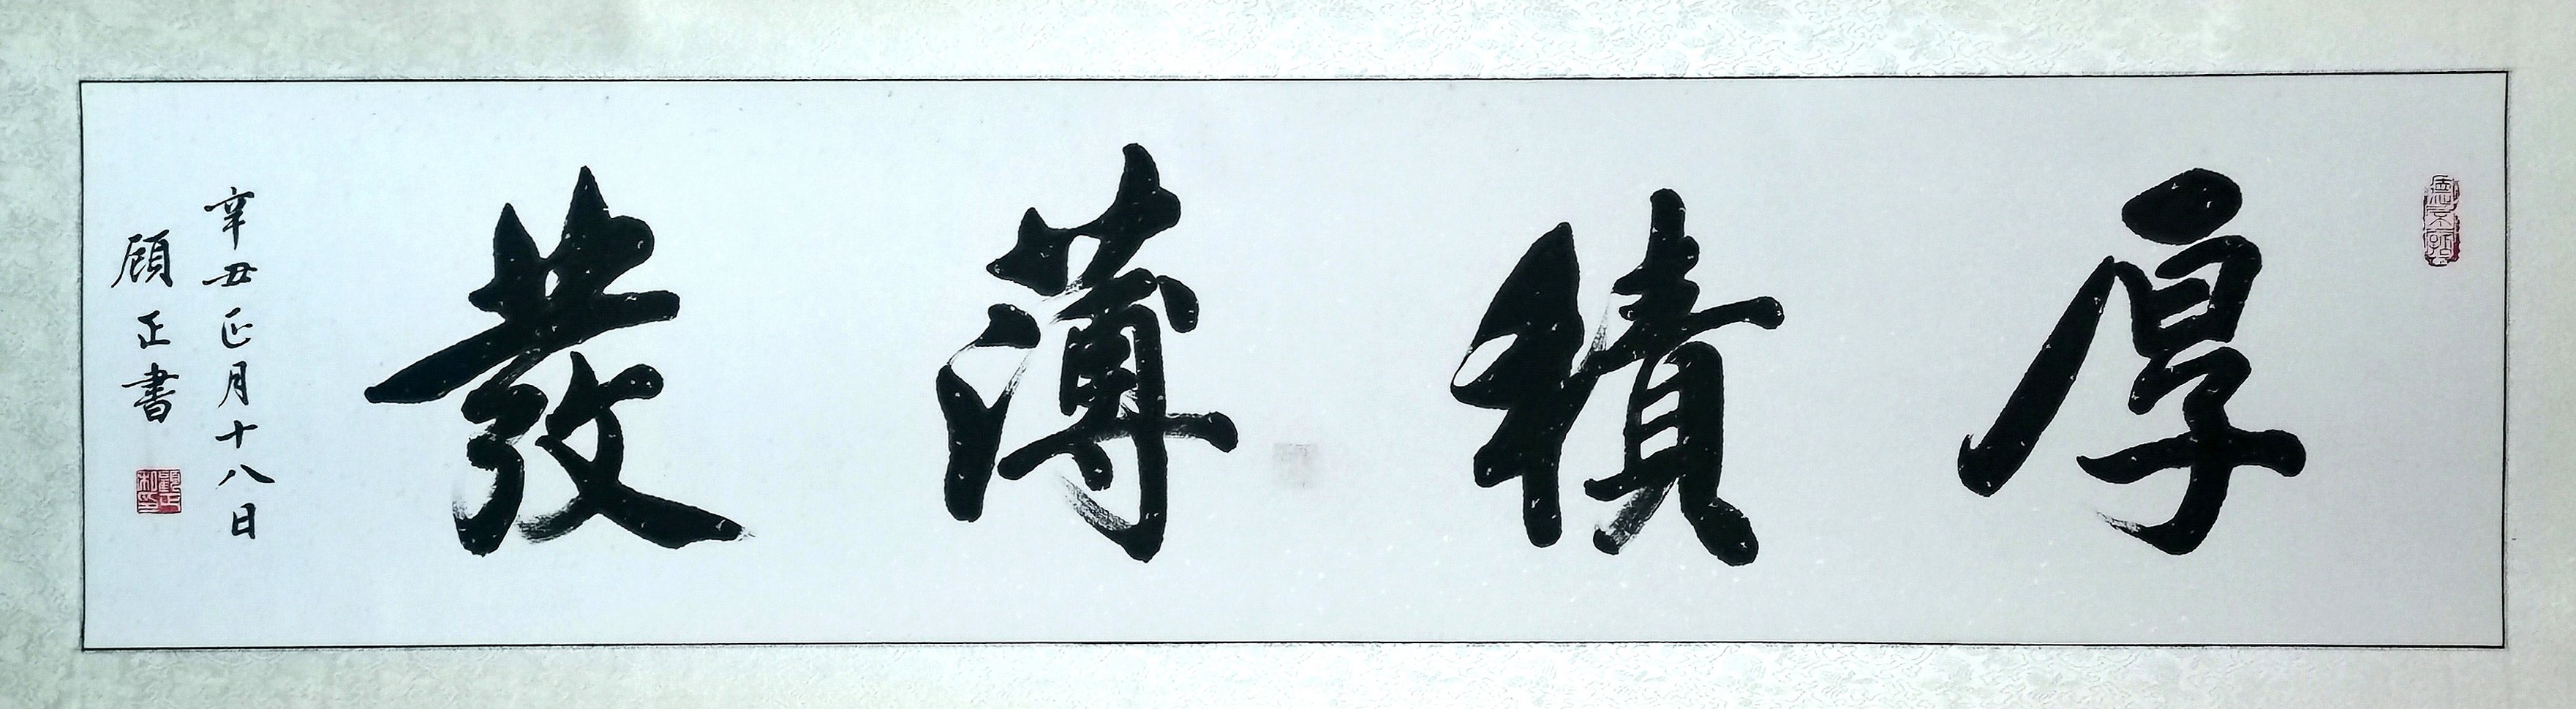 厚積薄發
辛丑正月十八日
顾正書